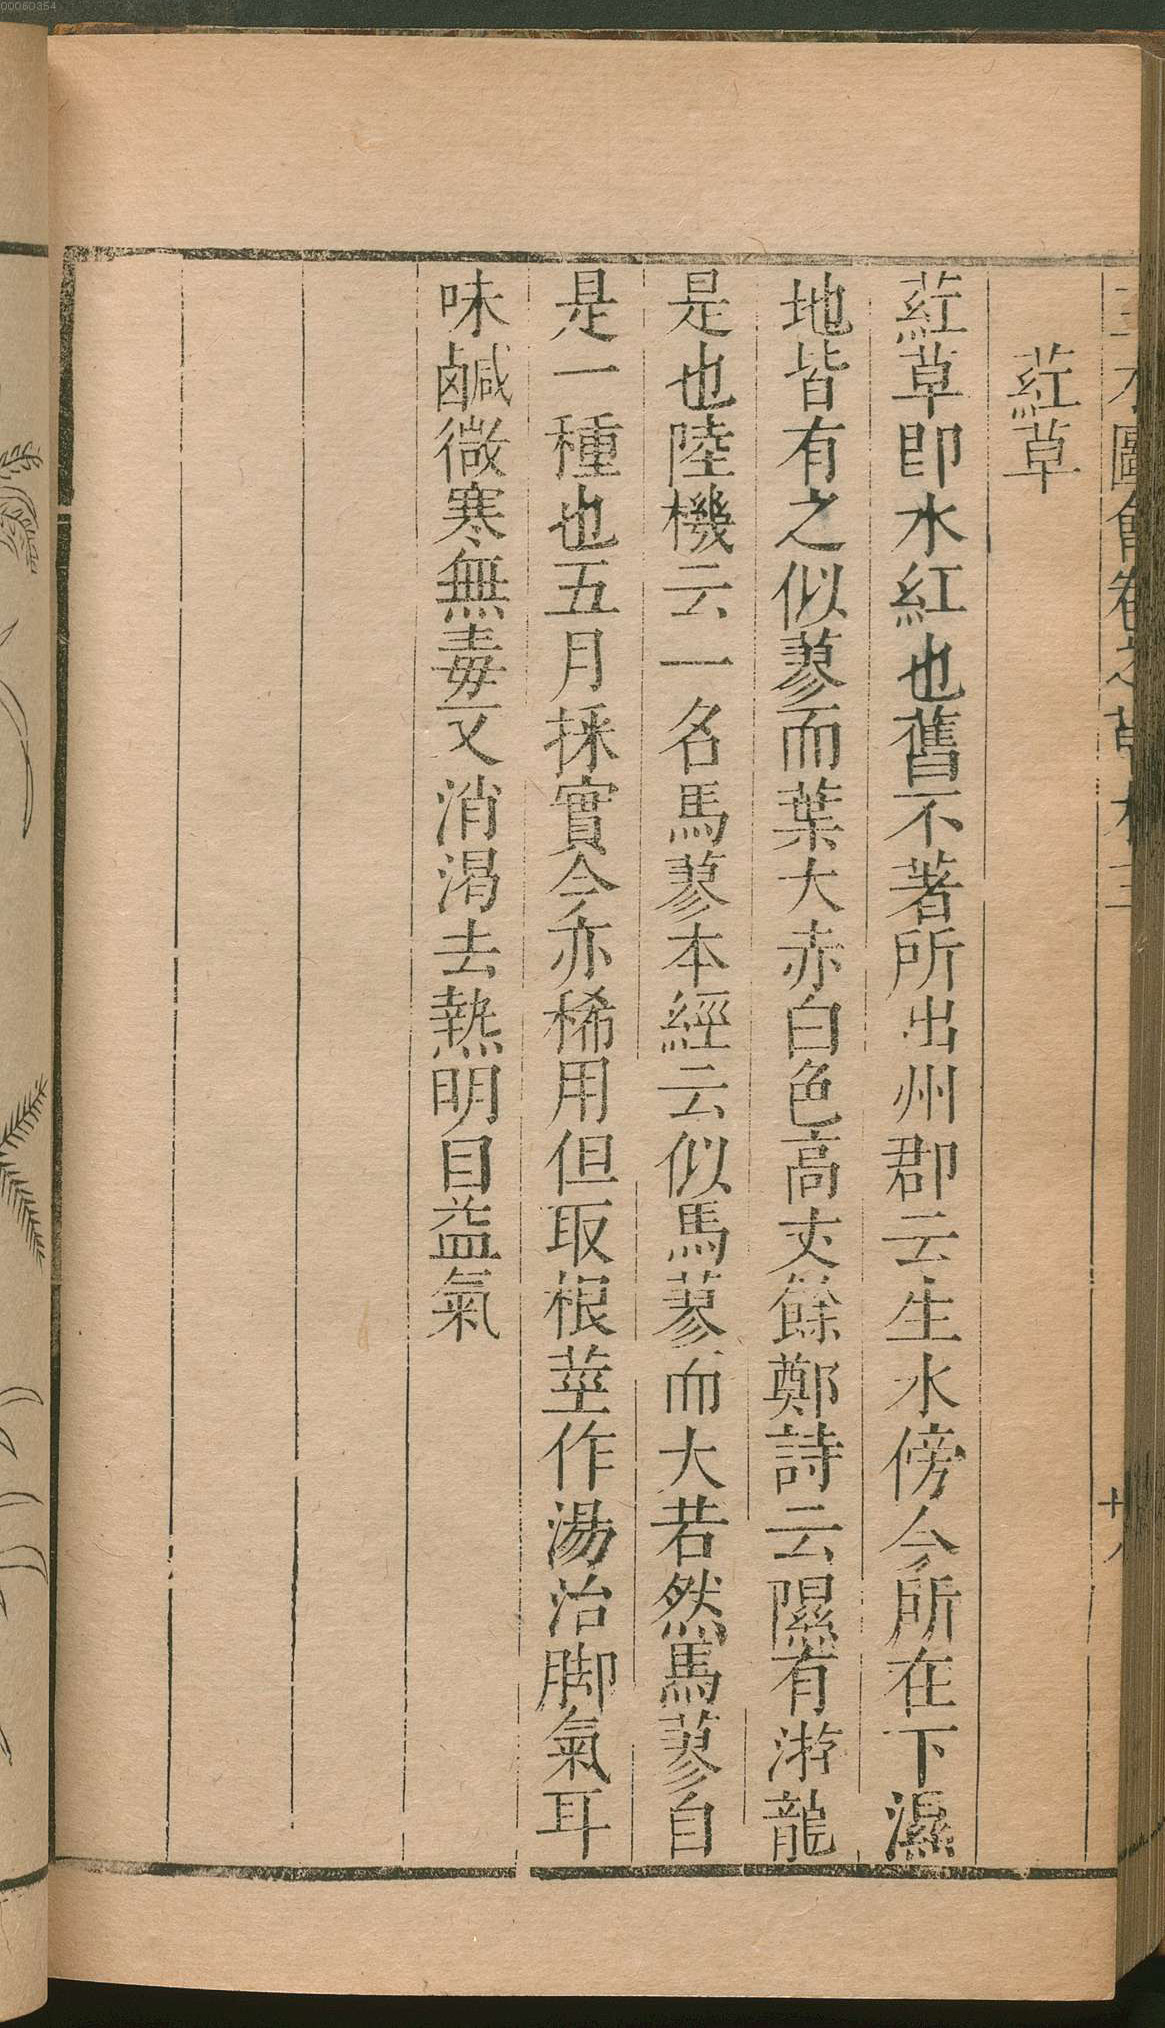 葒草
葒草即水紅也舊不著所出州郡云生水傍今所在下濕
地皆有之似蓼而葉大赤白色高丈餘鄭詩云隰有游龍
是也陸機云一名馬蓼本經云似馬蓼而大若然馬蓼自
是一種也五月採實今亦稀用但取根莖作湯治脚氣耳
味鹹微寒無毒又消渴去熱明目益氣
00060354